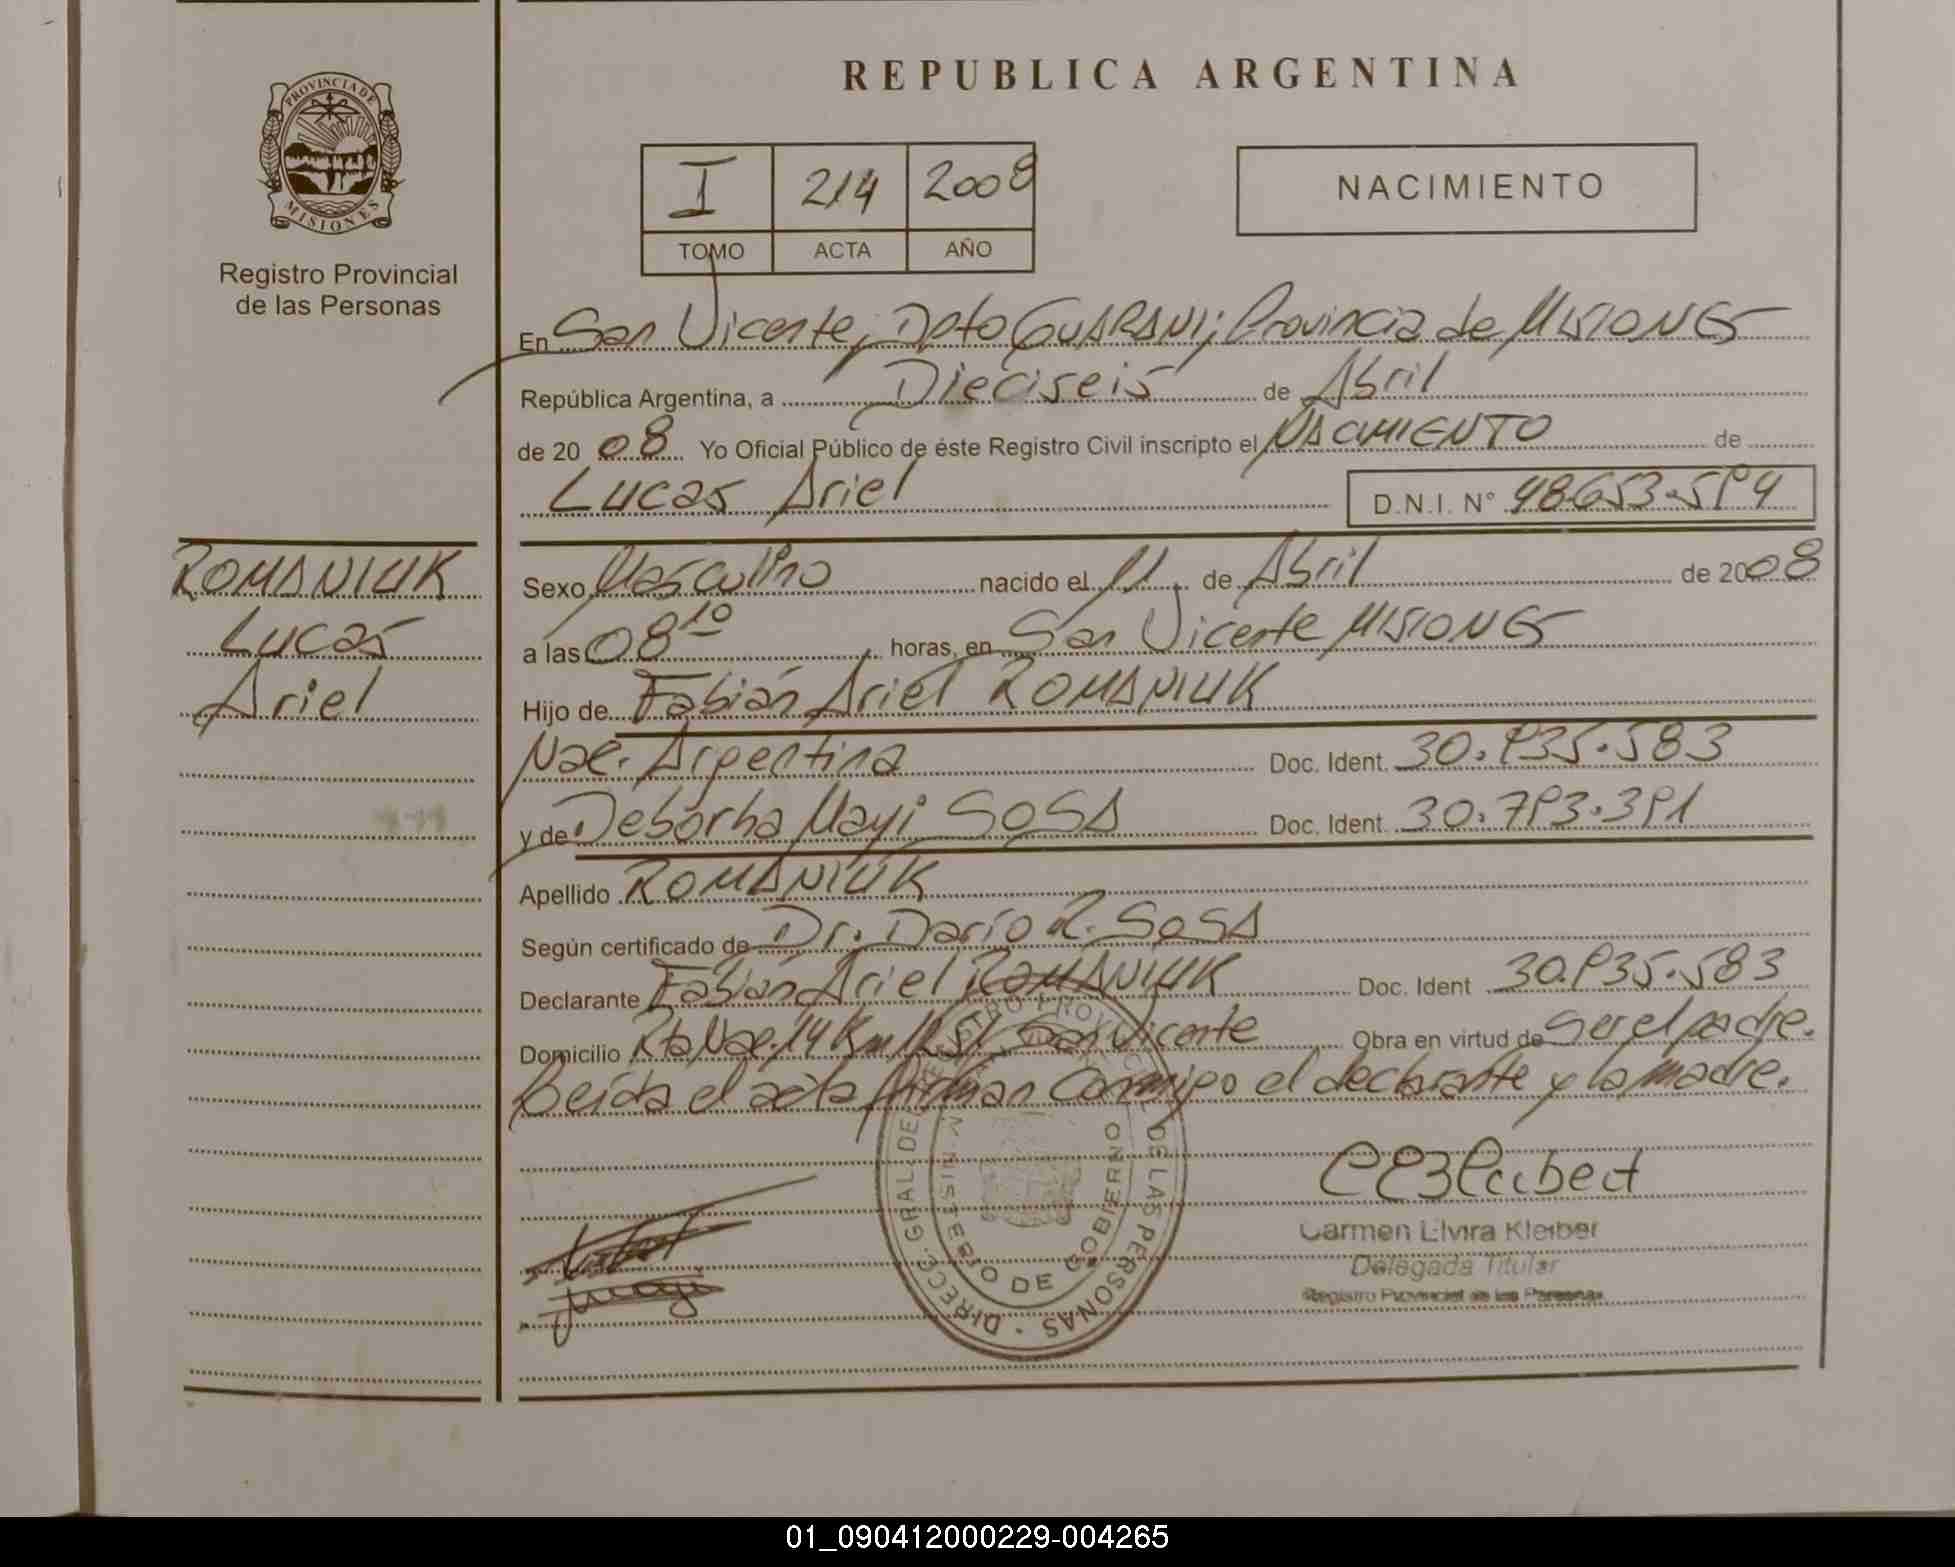 REPUBLICA ARGENTINA
PROVINCIA DE
MISIONES
Registro Provincial
de las Personas
I 214 2008
TOMO ACTA AÑO
NACIMIENTO
En San Vicente, Dpto GUARANI; Provincia de MISIONES
República Argentina, a Dieciseis de Abril
de 2008 Yo Oficial Público de éste Registro Civil inscripto el NACIMIENTO de
Lucas Ariel D.N.I. N° 48.653.594
ROMANIUK
Lucas
Ariel
Sexo Masculino nacido el 11 de Abril de 2008
a las 08 10 horas, en San Vicente MISIONES
Hijo de Fabián Ariel ROMANIUK
Nac. Argentina Doc. Ident. 30.935.583
y de Deborha Mayi SOSA Doc. Ident. 30.793.391
Apellido ROMANIUK
Según certificado de Dr. Darío R. SOSA
Declarante Fabián Ariel ROMANIUK Doc. Ident 30.935.583
Domicilio Rta Nac. 14 Km San Vicente Obra en virtud de Ser el padre.
Leída el acta firman conmigo el declarante y la madre.
DIRECC. GRAL. DE REGISTRO PROVINCIAL DE LAS PERSONAS
MINISTERIO DE GOBIERNO
Carmen Elvira Kleiber
Delegada Titular
Registro Provincial de las Personas
01_090412000229-004265